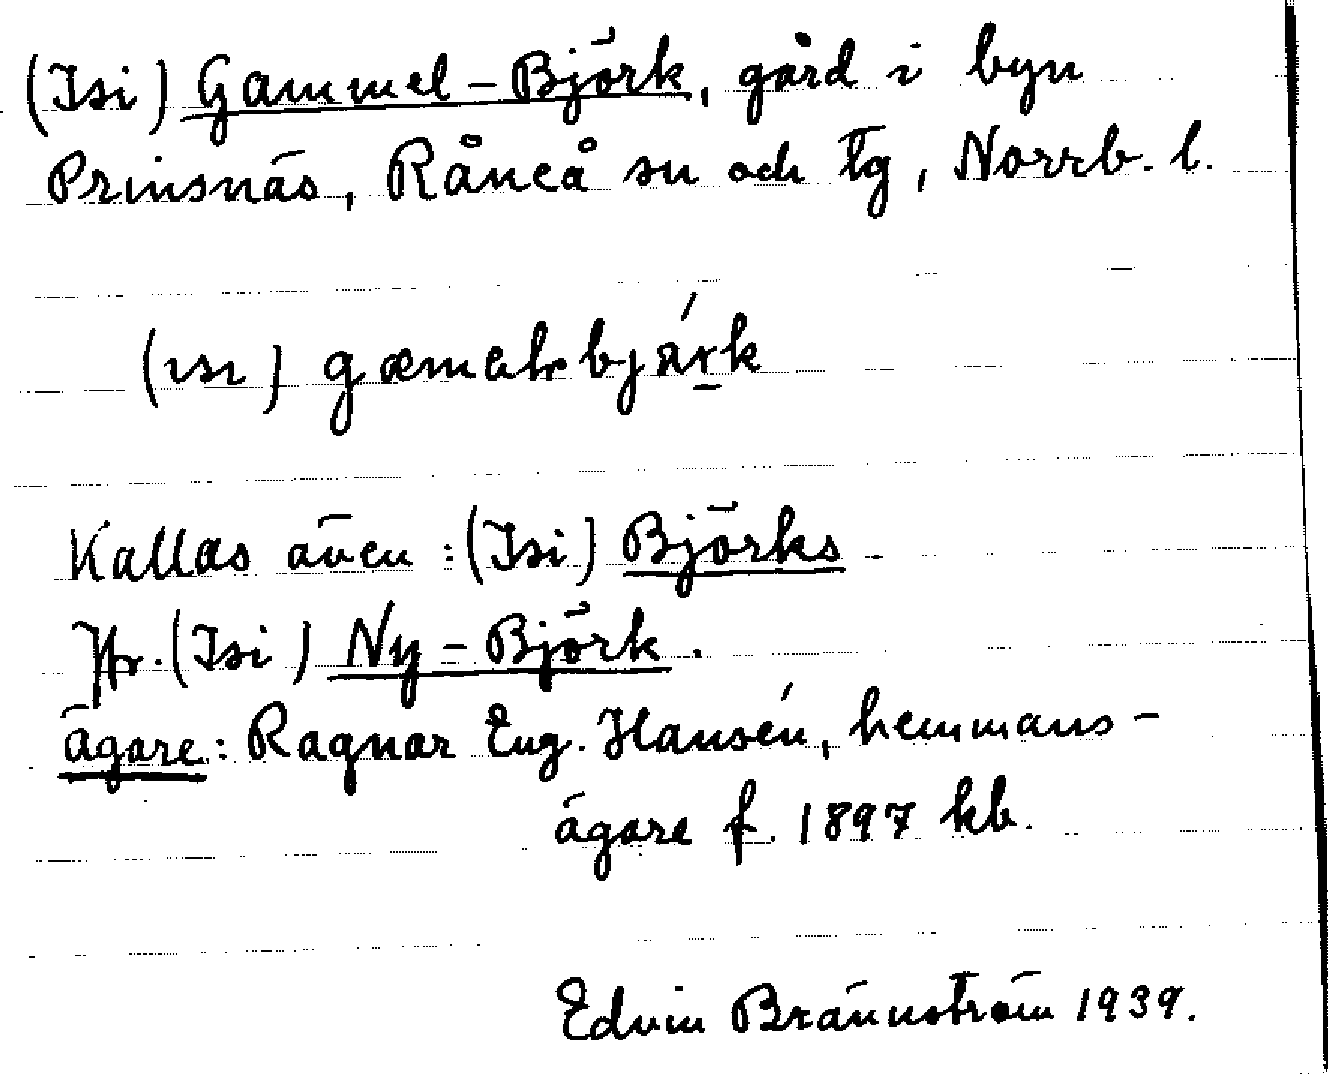 (Isi) Gammel-Björk, gård i byn
Prinsnäs, Råneå sn och tg, Norrb. l.
(ısı) gæmalbjä́rk
Kallas även: (Isi) Björks -
Jfr. (Isi) Ny-Björk.
ägare: Ragnar Eug. Hansén, hemmans-
ägare f. 1897 kb.
Edvin Brännström 1939.